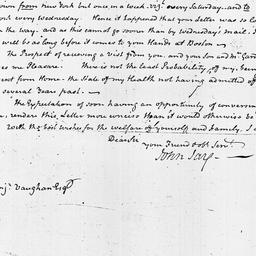 down from New York but once in a week. viz. every Saturday. and to
York every Wednesday. Hence it happened that your letter was so lo
the way. and as this cannot go sooner than by Wednesday's mail. I
will be as long before it comes to your Hands at Boston —
The Prospect of receiving a visit from you, and your Son and Mr. Gar
es me Pleasure. There is not the least Probability, of my being
sent from Home. the State of my Health not having admitted of
several Years past. —
The Expectation of soon having an opportunity of conversin
render this Letter more concise than it would otherwise be
With the best wishes for the welfare of yourself and Family. I a
Dear Sir
your Friend & ob. Servt.
John Jay —
Vaughan Esqr.